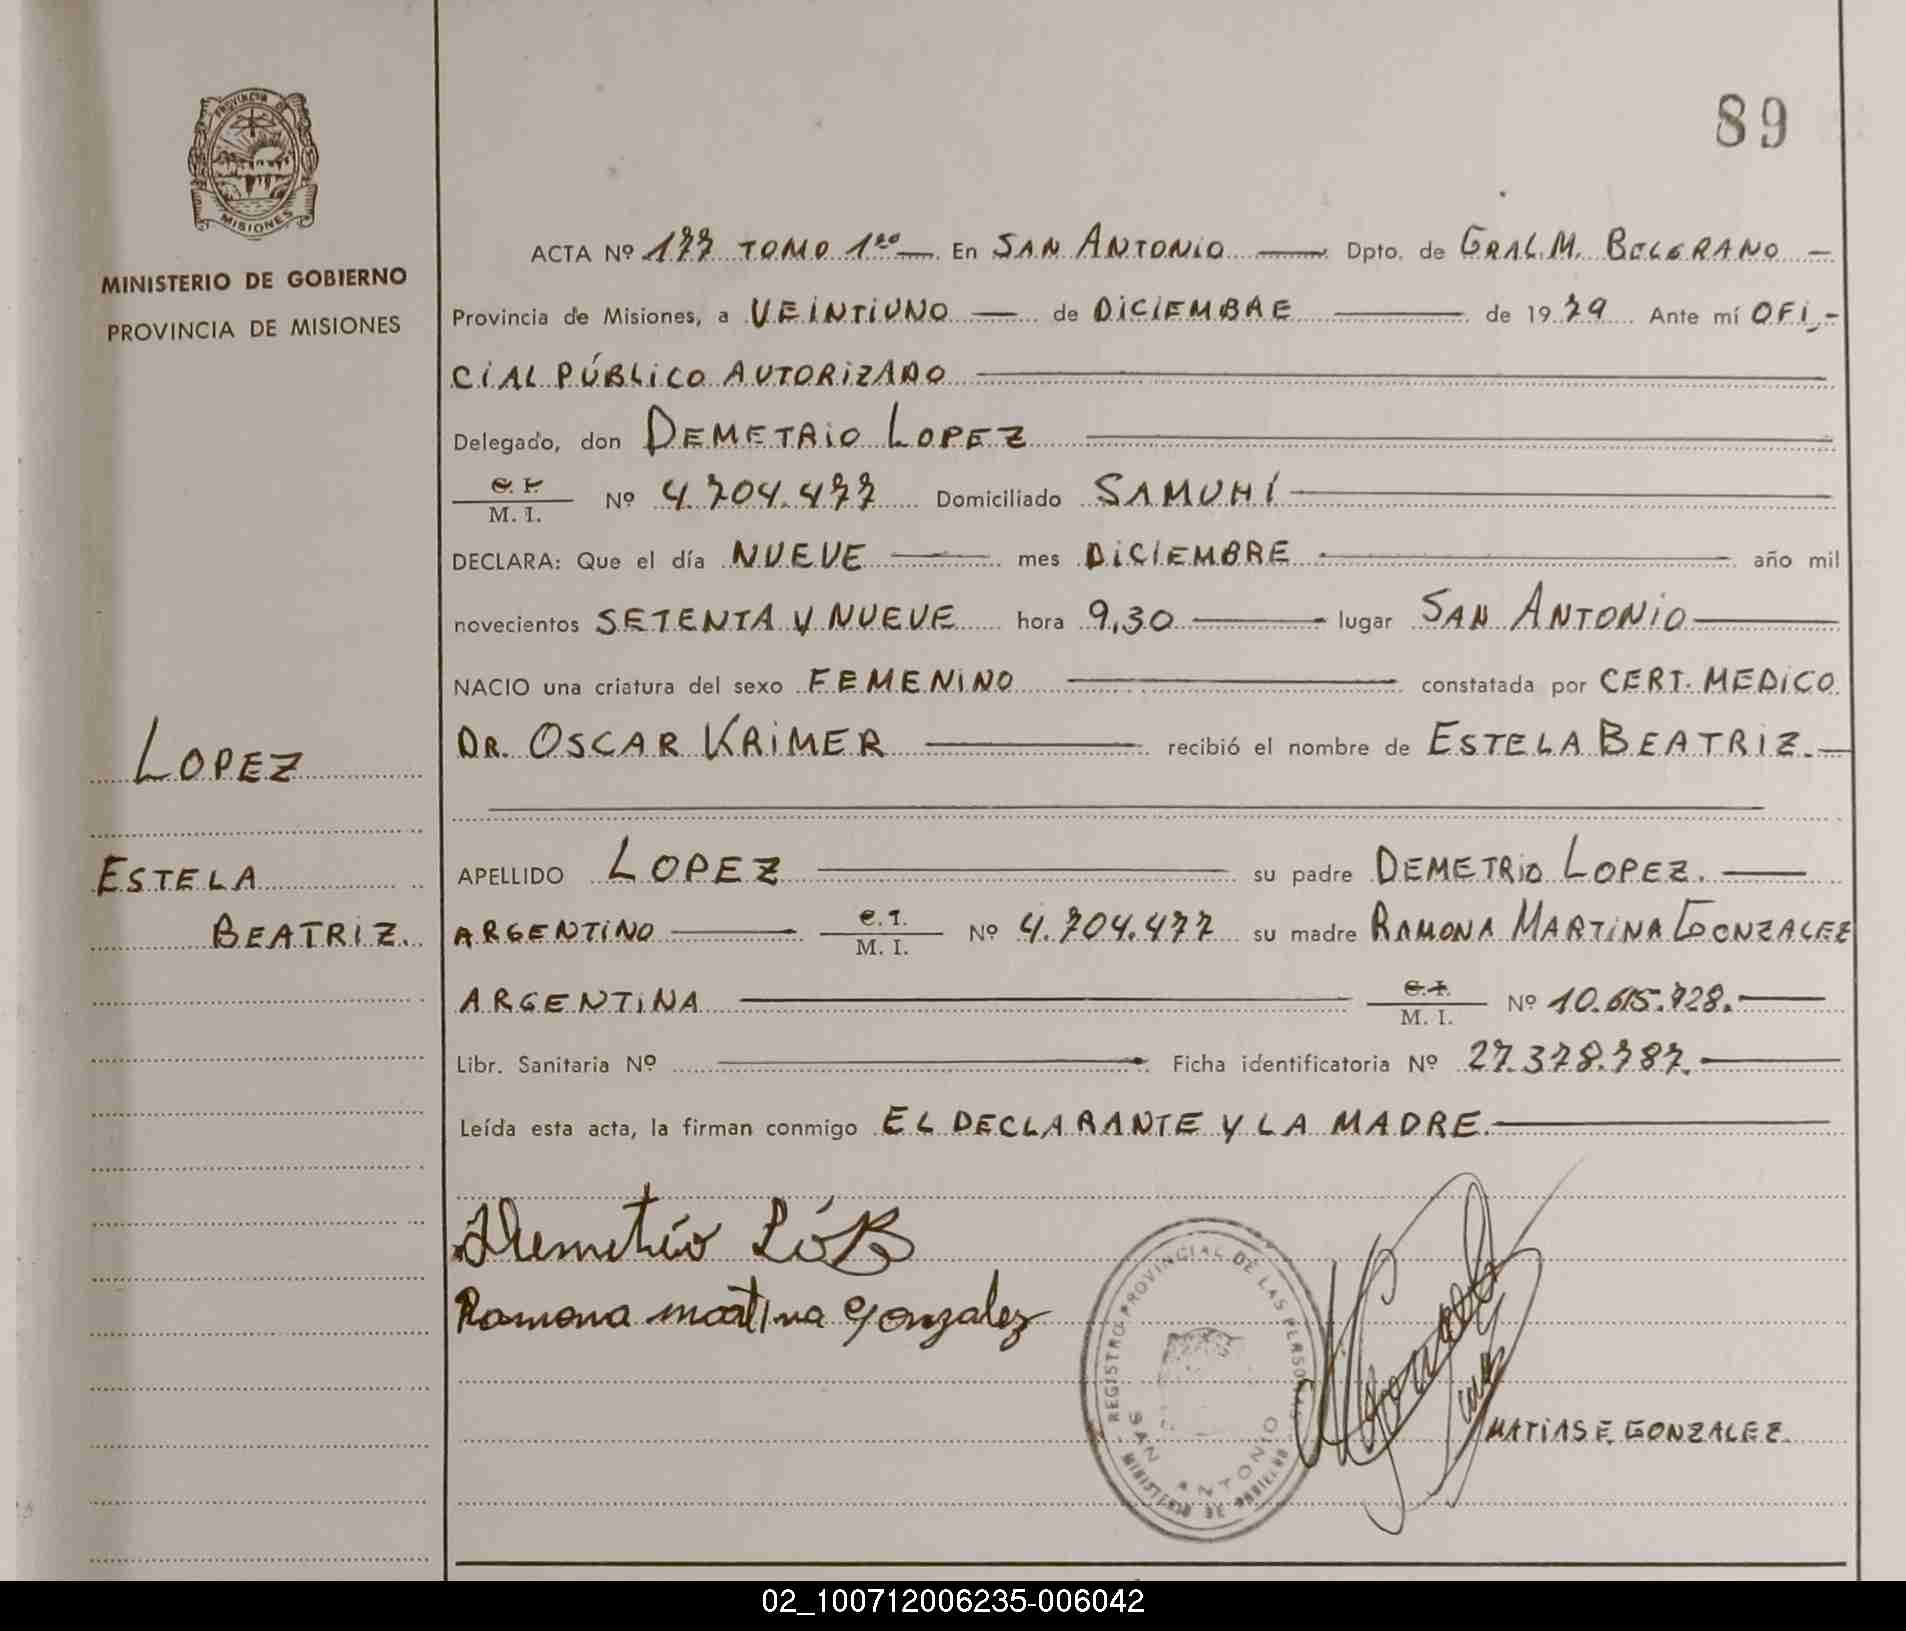 89
PROVINCIA DE
MISIONES
MINISTERIO DE GOBIERNO
PROVINCIA DE MISIONES
ACTA Nº 177 TOMO 1ro En SAN ANTONIO Dpto. de GRAL. M. BELGRANO
Provincia de Misiones, a VEINTIUNO de DICIEMBRE de 1979 Ante mí OFI-
CIAL PÚBLICO AUTORIZADO
Delegado, don DEMETRIO LOPEZ
C. I. M. I. Nº 4.704.477 Domiciliado SAMUHÍ
DECLARA: Que el día NUEVE mes DICIEMBRE año mil
novecientos SETENTA Y NUEVE hora 9,30 lugar SAN ANTONIO
NACIO una criatura del sexo FEMENINO constatada por CERT. MEDICO
DR. OSCAR KRIMER recibió el nombre de ESTELA BEATRIZ.
LOPEZ
ESTELA
BEATRIZ.
APELLIDO LOPEZ su padre DEMETRIO LOPEZ.
ARGENTINO C. I. M. I. Nº 4.704.477 su madre RAMONA MARTINA GONZALEZ
ARGENTINA C. I. M. I. Nº 10.615.728.
Libr. Sanitaria Nº Ficha identificatoria Nº 27.378.787.
Leída esta acta, la firman conmigo EL DECLARANTE Y LA MADRE.
Demetrio
Ramona martina gonzalez
REGISTRO PROVINCIAL DE LAS PERSONAS
SAN ANTONIO
MINISTERIO DE GOBIERNO
MATIAS E. GONZALEZ.
02_100712006235-006042